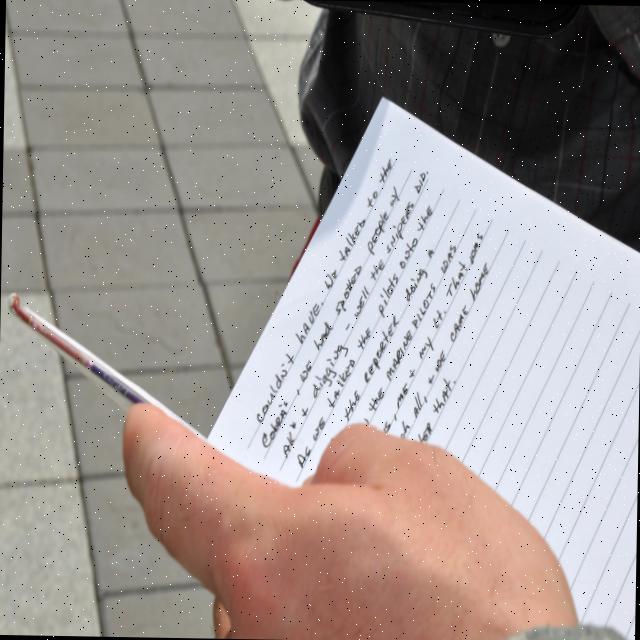 couldn't have. We talked to the
Cobra - we had spotted people w/
AK's + digging - well the snipers did
As we talked the pilots onto the
the reporter doing a
the marine pilots was
me + my Lt. That was
all, + we came home
after that.